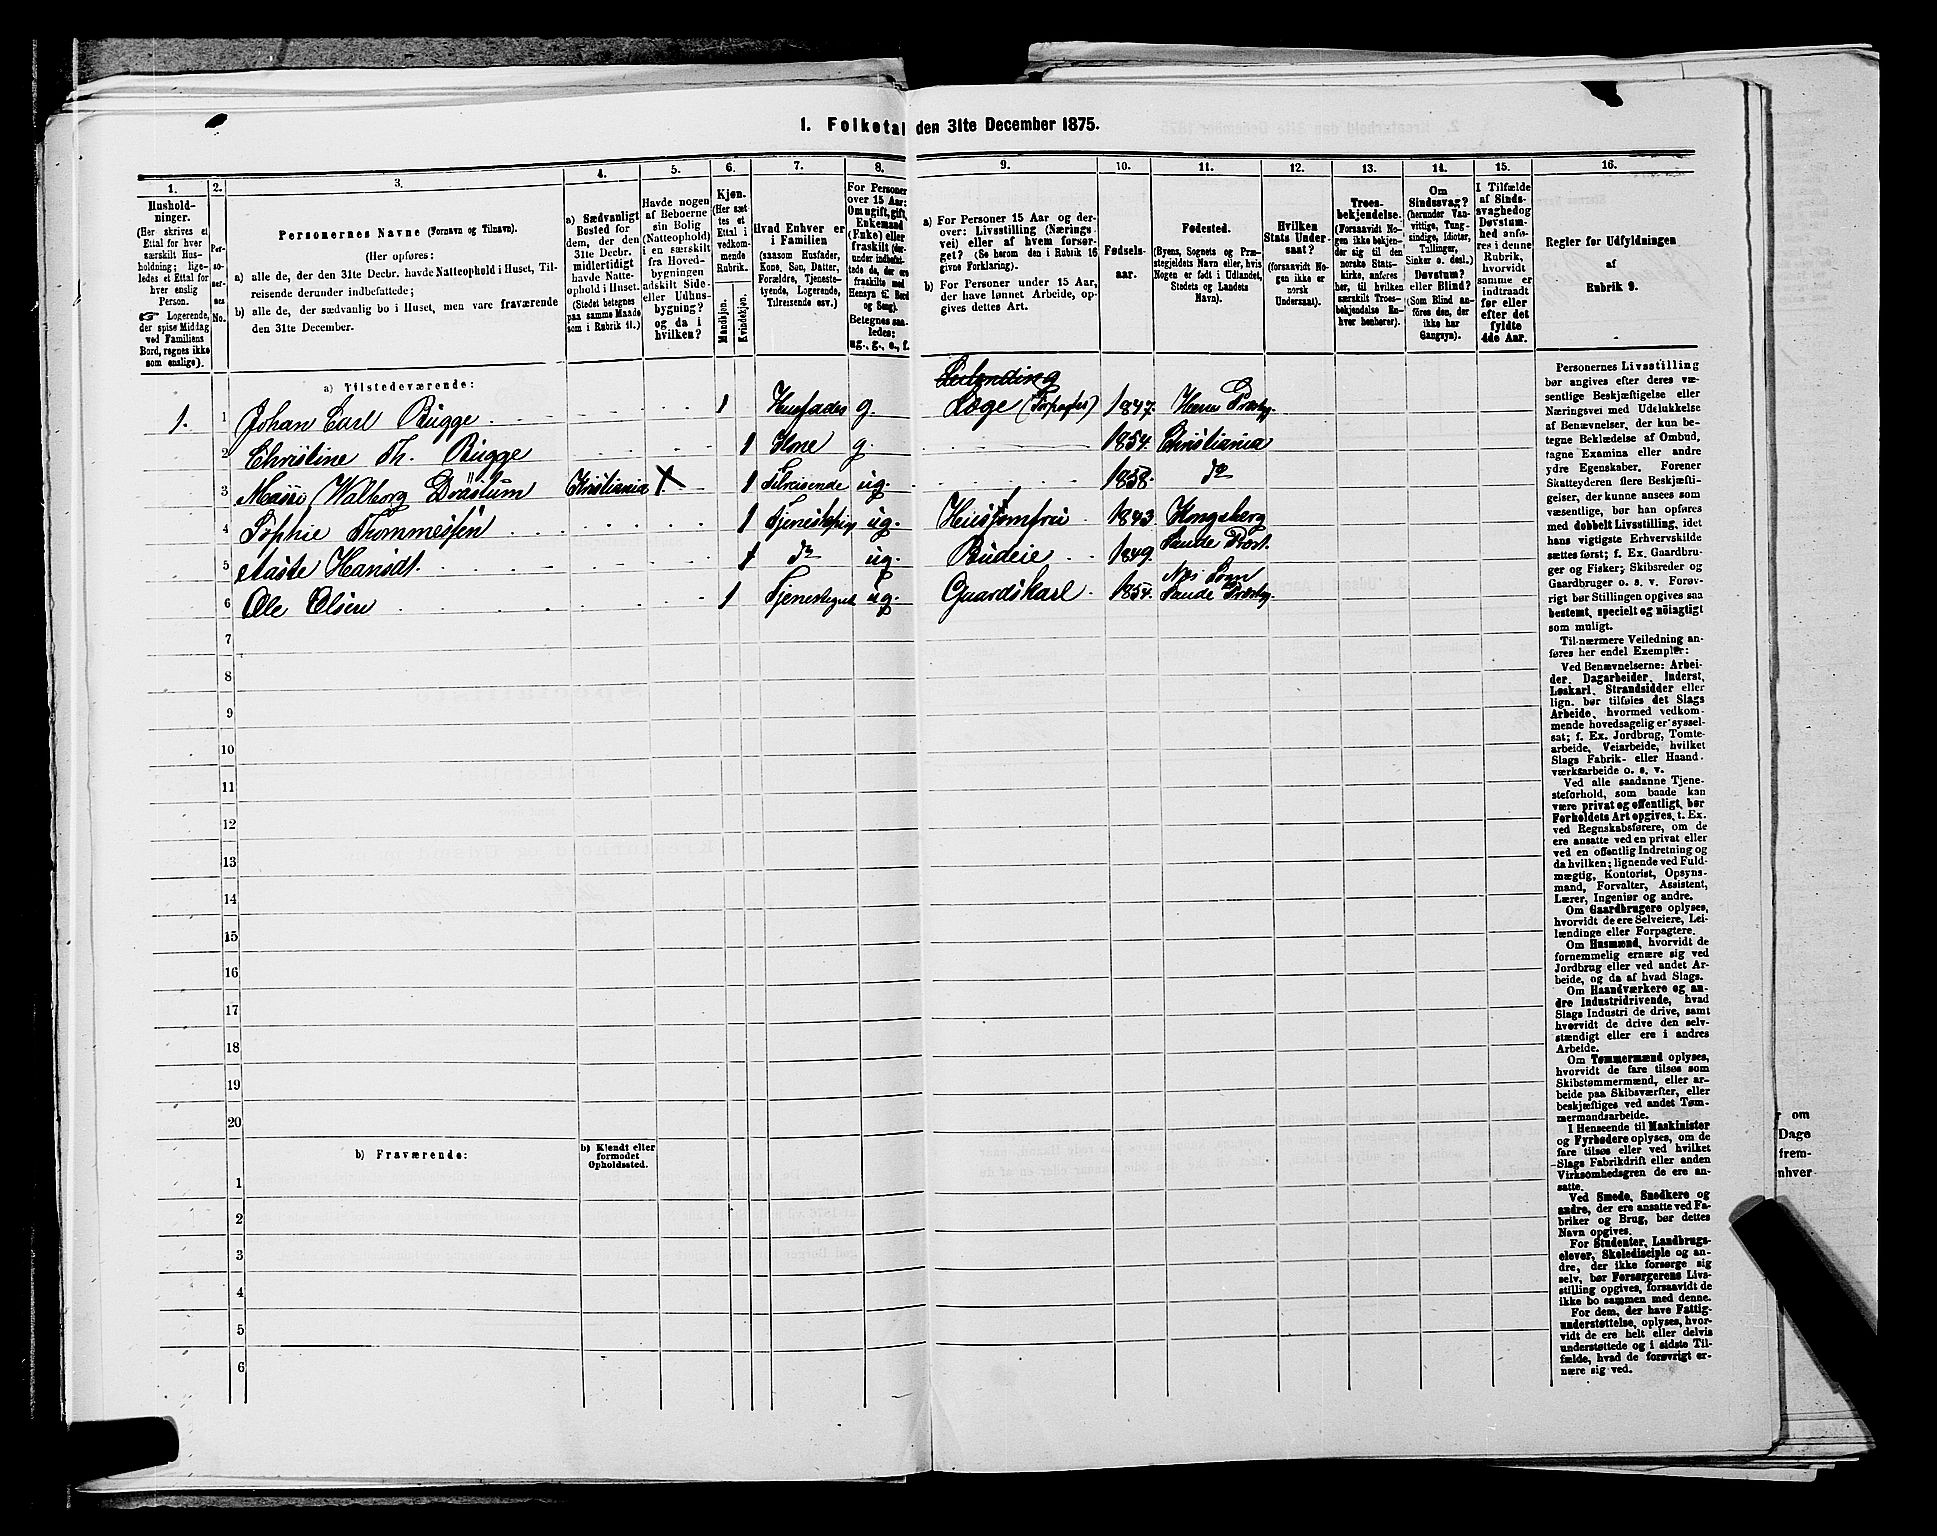 1. Folketal den 31te December 1875.
1.
Hushold-
ninger.
(Her skrives et
Ettal for hver
særskilt Hus-
holdning; lige-
ledes et Ettal for
hver enslig
Person.
☞ Logerende,
der spise Middag
ved Familiens
Bord, regnes ikke
som enslige).
2.
Per-
soner-
nes
No.
3.
Personernes Navne (Fornavn og Tilnavn).
(Her opføres:
a) alle de, der den 31te Decbr. havde Natteophold i Huset, Til-
reisende derunder indbefattede;
b) alle de, der sædvanlig bo i Huset, men vare fraværende
den 31te December.
4.
a) Sædvanligt
Bosted for
dem, der den
31te Decbr.
midlertidigt
havde Natte-
ophold i Huset.
(Stedet betegnes
paa samme Maade
som i Rubrik 11.)
5.
Havde nogen
af Beboerne
sin Bolig
(Natteophold)
i en særskilt
fra Hoved-
bygningen
adskilt Side-
eller Udhus-
bygning?
og da i
hvilken?
6.
Kjøn.
(Her sæt-
tes et
Ettal i
vedkom-
mende
Rubrik.
Mandkjøn.
Kvindekjøn.
7.
Hvad Enhver er
i Familien
(saasom Husfader,
Kone, Søn, Datter,
Forældre, Tjeneste-
tyende, Logerende,
Tilreisende osv.)
8.
For Personer
over 15 Aar:
Om ugift, gift,
Enkemand
(Enke) eller
fraskilt (der-
under indbefat-
tede de, der ere
fraskilte med
Hensyn til Bord
og Seng).
Betegnes saa-
ledes:
ug., g., e., f.
9.
a) For Personer 15 Aar og der-
over: Livsstilling (Nærings-
vei) eller af hvem forsør-
get? (Se herom den i Rubrik 16
givne Forklaring).
b) For Personer under 15 Aar,
der have lønnet Arbeide, op-
gives dettes Art.
10.
Fødsels-
aar.
11.
Fødested.
(Byens, Sognets og Præ-
stegjeldets Navn eller, hvis
Nogen er født i Udlandet,
Stedets og Landets
Navn).
12.
Hvilken
Stats Under-
saat?
(forsaavidt No-
gen ikke er
norsk
Undersaat).
13.
Troes-
bekjendelse.
(Forsaavidt No-
gen ikke bekjen-
der sig til den
norske Stats-
kirke, anføres
her, til hvilken
særskilt Troes-
bekjendelse En-
hver henhører).
14.
Om
Sindssvag?
(herunder Van-
vittige, Tung-
sindige, Idioter,
Tullinger,
Sinker o. desl.)
Døvstum?
eller Blind?
(Som Blind an-
føres den, der
ikke har
Gangsyn).
15.
I Tilfælde
af Sinds-
svaghed og
Døvstum-
hed anfø-
res i denne
Rubrik,
hvorvidt
samme er
indtraadt
før eller
efter det
fyldte
4de Aar.
16.
Regler for Udfyldningen
af
Rubrik 9.
a) Tilstedeværende:
Leilending
1. 1 Johan Carl Bugge 1 Husfader g. Læge (Forpagter) 1847.
2 Christine Th. Bugge 1 Kone g. 1854. Christiania
3 Walborg Kristiania X 1 Tilreisende ug. 1858. do
4 Sophie Thommessen 1 ug. Husjomfru 1843 Kongsberg
5 Aaste Hansdt. 1 do ug. Budeie 1849. Sande Præst.
6 Ole Olsen 1 ug. Gaardskarl 1854. Sande Præstg.
7
8
9
10
11
12
13
14
15
16
17
18
19
20
b) Fraværende:
b) Kjendt eller
formodet
Opholdssted.
1
2
3
4
5
6
Personernes Livsstilling
bør angives efter deres væ-
sentlige Beskjæftigelse eller
Næringsvei med Udelukkelse
af Benævnelser, der kun be-
tegne Beklædelse af Ombud,
tagne Examina eller andre
ydre Egenskaber. Forener
Skatteyderen flere Beskjæfti-
gelser, der kunne ansees som
væsentlige, bør han opføres
med dobbelt Livsstilling, idet
hans vigtigste Erhvervskilde
sættes først; f. Ex. Gaardbru-
ger og Fisker; Skibsreder og
Gaardbruger o. s. v. Forøv-
rigt bør Stillingen opgives saa
bestemt, specielt og nøiagtigt
som muligt.
Til nærmere Veiledning an-
føres her endel Exempler:
Ved Benævnelserne: Arbei-
der, Dagarbeider, Inderst,
Løskarl, Strandsidder eller
lign. bør tilføies det Slags
Arbeide, hvormed vedkom-
mende hovedsagelig er syssel-
sat; f. Ex. Jordbrug, Tomte-
arbeide, Veiarbeide, hvilket
Slags Fabrik- eller Haand-
værksarbeide o. s. v.
Ved alle saadanne Tjene-
steforhold, som baade kan
være privat og offentligt, bør
Forholdets Art opgives, t. Ex.
ved Regnskabsførere, om de
ere ansatte ved en privat eller
ved en offentlig Indretning og
da hvilken; lignende ved Fuld-
mægtig, Kontorist, Opsyns-
mand, Forvalter, Assistent,
Lærer, Ingeniør og andre.
Om Gaardbrugere oplyses,
hvorvidt de ere Selveiere, Lei-
lændinge eller Forpagtere.
Om Husmænd, hvorvidt de
fornemmelig ernære sig ved
Jordbrug eller ved andet Ar-
beide, og da af hvad Slags.
Om Haandværkere og an-
dre Industridrivende, hvad
Slags Industri de drive, samt
hvorvidt de drive den selv-
stændigt eller ere i andres
Arbeide.
Om Tømmermænd oplyses,
hvorvidt de fare tilsøs som
Skibstømmermænd, eller ar-
beide paa Skibsværfter, eller
beskjæftiges ved andet Tøm-
mermandsarbeide.
I Henseende til Maskinister
og Fyrbødere oplyses, om de
fare tilsøs eller ved hvilket
Slags Fabrikdrift eller anden
Virksomhedsgren de ere an-
satte.
Ved Smede, Snedkere og
andre, der ere ansatte ved Fa-
briker og Brug, bør dettes
Navn opgives.
For Studenter, Landbrugs-
elever, Skoledisciple og an-
dre, der ikke forsørge sig
selv, bør Forsørgerens Livs-
stilling opgives, forsaavidt de
ikke bo sammen med denne.
For dem, der have Fattig-
understøttelse, oplyses, hvor-
vidt de ere helt eller delvis
understøttede og i sidste Til-
fælde, hvad de forøvrigt er-
nære sig ved.
om
Dage
frem-